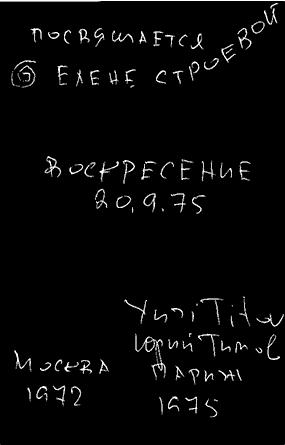 ПОСВЯЩАЕТСЯ
ЕЛЕНЕ СТРОЕВОЙ
ВОСКРЕСЕНИЕ
20.9.75
Yuri Titov
Юрий Титов
МОСКВА ПАРИЖ
1972 1975